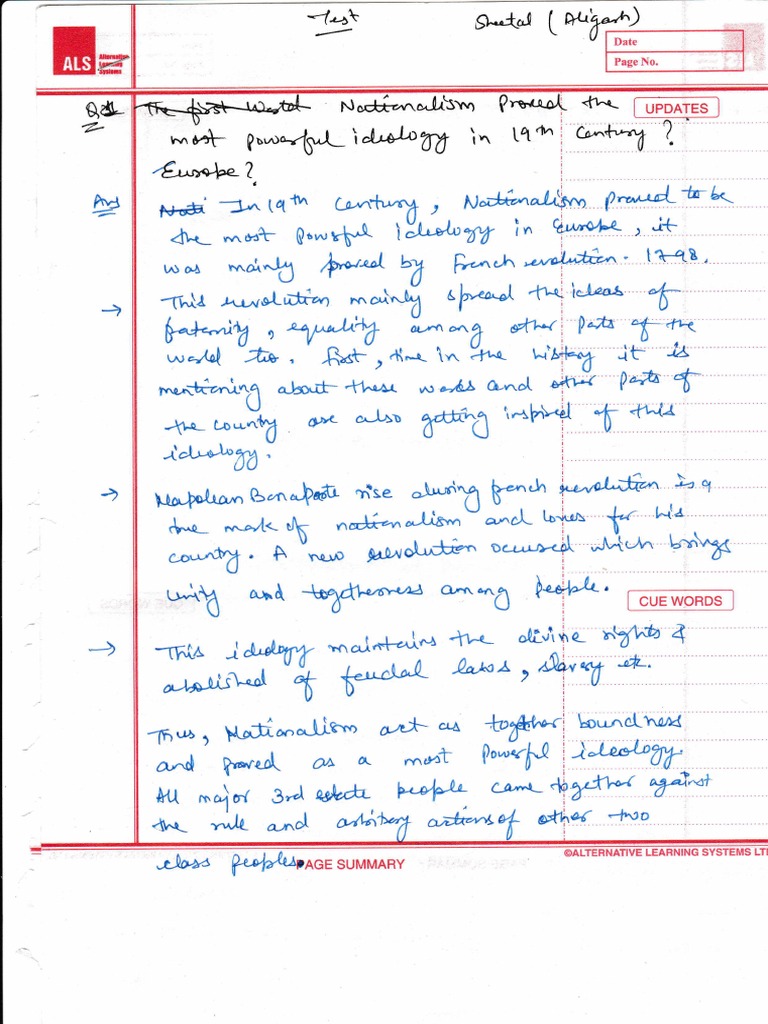 Test
Sheetal (Aligarh)
ALS Alternative
Learning
Systems
Date
Page No.
Q1 The first World Nationalism Proved the
UPDATES
most powerful ideology in 19th Century ?
Europe?
Ans Nati In 19th Century, Nationalism proved to be
the most Powsful ideology in Europe, it
was mainly proved by French revolution. 1798.
→ This revolution mainly spread the ideas of
fraternity, equality among other Parts of the
world too. first, time in the history it is
mentioning about these words and other Parts of
the country are also getting inspired of this
ideology.
→ Neapolean Bonaparte rise during french revolution is a
true mark of nationalism and loves for his
country. A new revolution occured which brings
unity and togetherness among people.
CUE WORDS
→ This ideology maintains the divine rights &
abolished of feudal laws, slavery etc.
Thus, Nationalism act as together boundness
and proved as a most Powerful ideology.
All major 3rd estate people came together against
the rule and arbitary actions of other two
©ALTERNATIVE LEARNING SYSTEMS LT
class peoples. AGE SUMMARY